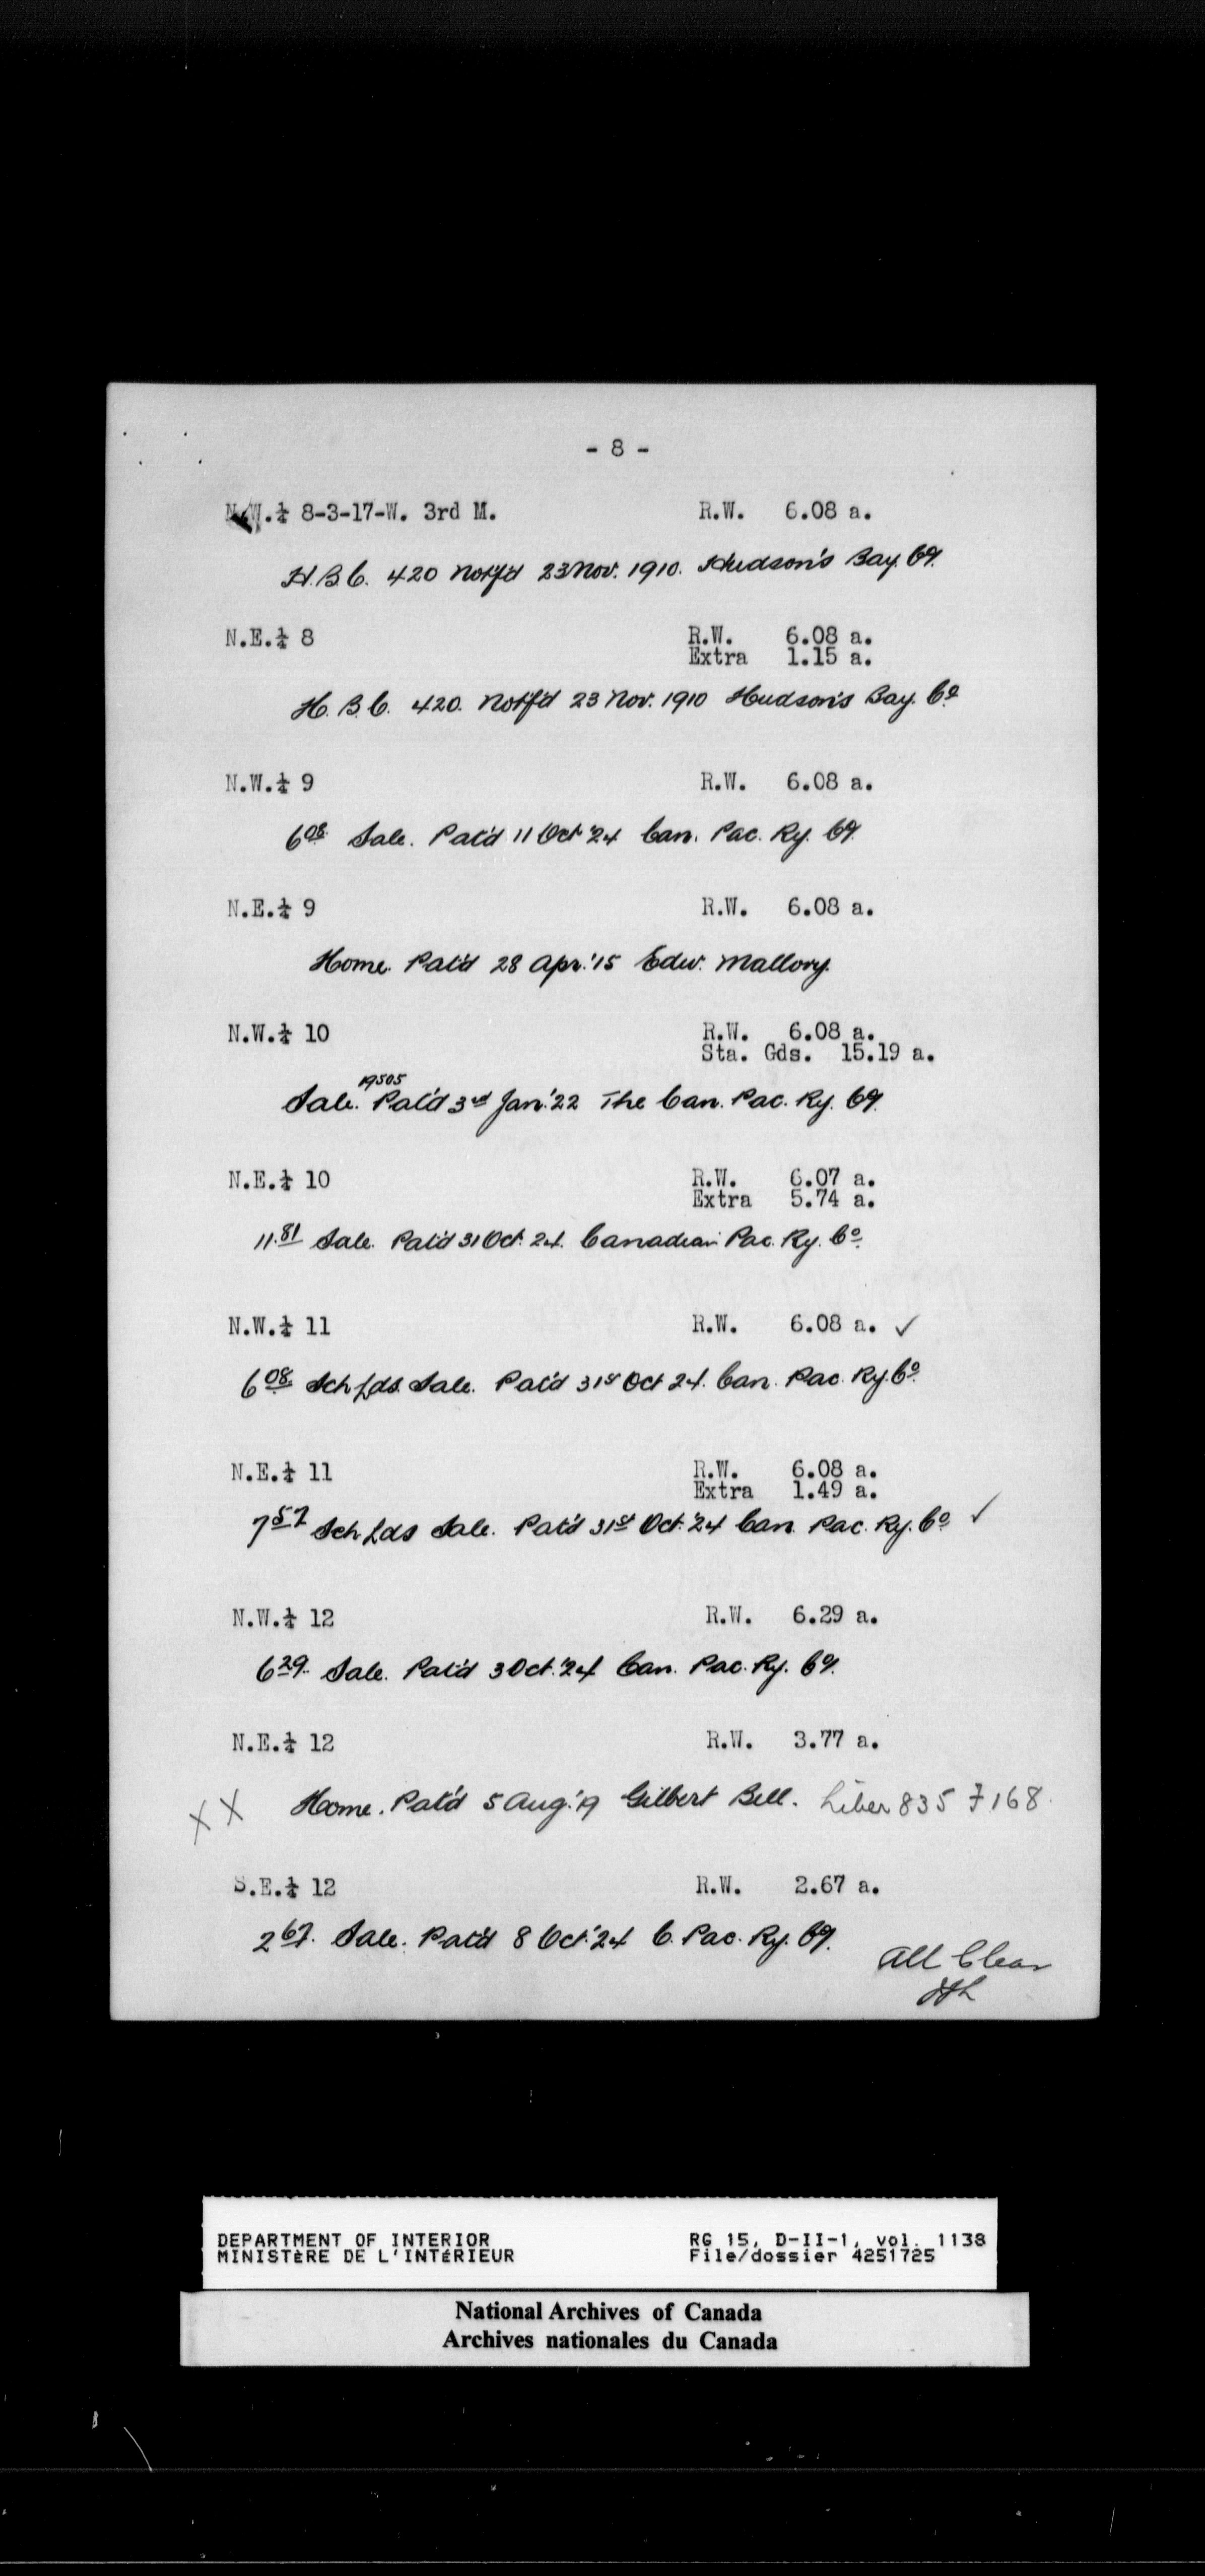 - 8 -
N.W.¼ 8-3-17-W. 3rd M. R.W. 6.08 a.
H.B.C. 420 Notf'd 23 Nov. 1910. Hudson's Bay Co.
N.E.¼ 8 R.W. 6.08 a.
Extra 1.15 a.
H.B.C. 420. Notf'd 23 Nov. 1910 Hudson's Bay. Co.
N.W.¼ 9 R.W. 6.08 a.
6.08 Sale. Pat'd 11 Oct. '24 Can. Pac. Ry. Co.
N.E.¼ 9 R.W. 6.08 a.
Home. Pat'd 28 Apr. '15 Edw. Mallory.
N.W.¼ 10 R.W. 6.08 a.
Sta. Gds. 15.19 a.
19505
Sale. Pat'd 3rd Jan. '22 The Can. Pac. Ry. Co.
N.E.¼ 10 R.W. 6.07 a.
Extra 5.74 a.
11.81 Sale. Pat'd 31 Oct. 24. Canadian Pac. Ry. Co.
N.W.¼ 11 R.W. 6.08 a. ✓
6.08 Sch Lds. Sale. Pat'd 31st Oct 24. Can. Pac. Ry. Co.
N.E.¼ 11 R.W. 6.08 a.
Extra 1.49 a.
7.57 Sch Lds Sale. Pat'd 31st Oct. '24 Can. Pac. Ry. Co ✓
N.W.¼ 12 R.W. 6.29 a.
6.29. Sale. Pat'd 3 Oct. '24 Can. Pac. Ry. Co.
N.E.¼ 12 R.W. 3.77 a.
X X Home. Pat'd 5 Aug. '19 Gilbert Bell. Liber 835 F 168.
S.E.¼ 12 R.W. 2.67 a.
2.67. Sale. Pat'd 8 Oct. '24 C. Pac. Ry. Co.
All Clear
DEPARTMENT OF INTERIOR RG 15, D-II-1, vol. 1138
MINISTÈRE DE L'INTÉRIEUR File/dossier 4251725
National Archives of Canada
Archives nationales du Canada